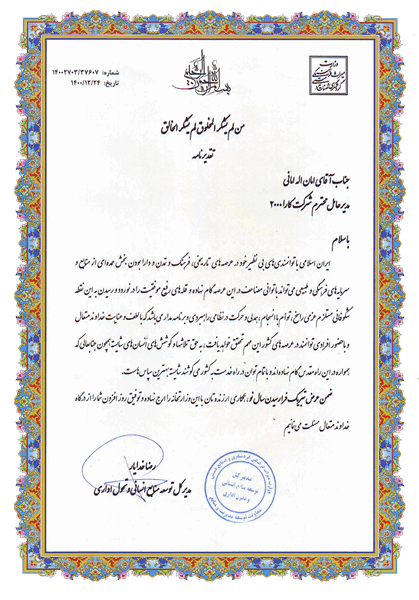 شماره: ۱۴۰۰۲۷۰۳/۳۷۶۰۷
تاریخ: ۱۴۰۰/۱۲/۲۴
من لم یشکر المخلوق لم یشکر الخالق
تقدیرنامه
جناب آقای امان اله امانی
مدیرعامل محترم شرکت کارا ۲۰۰۰
با سلام
ایران اسلامی با توانمندی‌های بی نظیر خود در عرصه‌های تاریخی، فرهنگ و تمدن و دارا بودن بخش عمده‌ای از منابع و
سرمایه‌های فرهنگی و طبیعی می‌تواند با توانی مضاعف در این عرصه گام نهاده و قله‌های رفیع موفقیت را در نوردد و رسیدن به این نقطه
شکوفائی مستلزم عزمی راسخ، توام با انسجام، همدلی و حرکت در نظامی راهبردی و برنامه مداری می‌باشد که با لطف و عنایت خداوند متعال
و با حضور افرادی توانمند در عرصه‌های کشور این مهم تحقق خواهد یافت، به حق تلاشها و کوشش‌های انسان‌های شایسته همچون جنابعالی که
همواره در این راه مقدس گام نهاده‌اند و با تمام توان در راه خدمت به کشور می‌کوشند شایسته بهترین سپاس‌هاست.
ضمن عرض تبریک فرا رسیدن سال نو، همکاری ارزنده‌تان با این وزارتخانه را ارج نهاده و توفیق روز افزون شما را از درگاه
خداوند متعال مسئلت می‌نمائیم
رضا خدایار
مدیر کل توسعه منابع انسانی و تحول اداری
مدیر کل
توسعه منابع انسانی
و تحول اداری